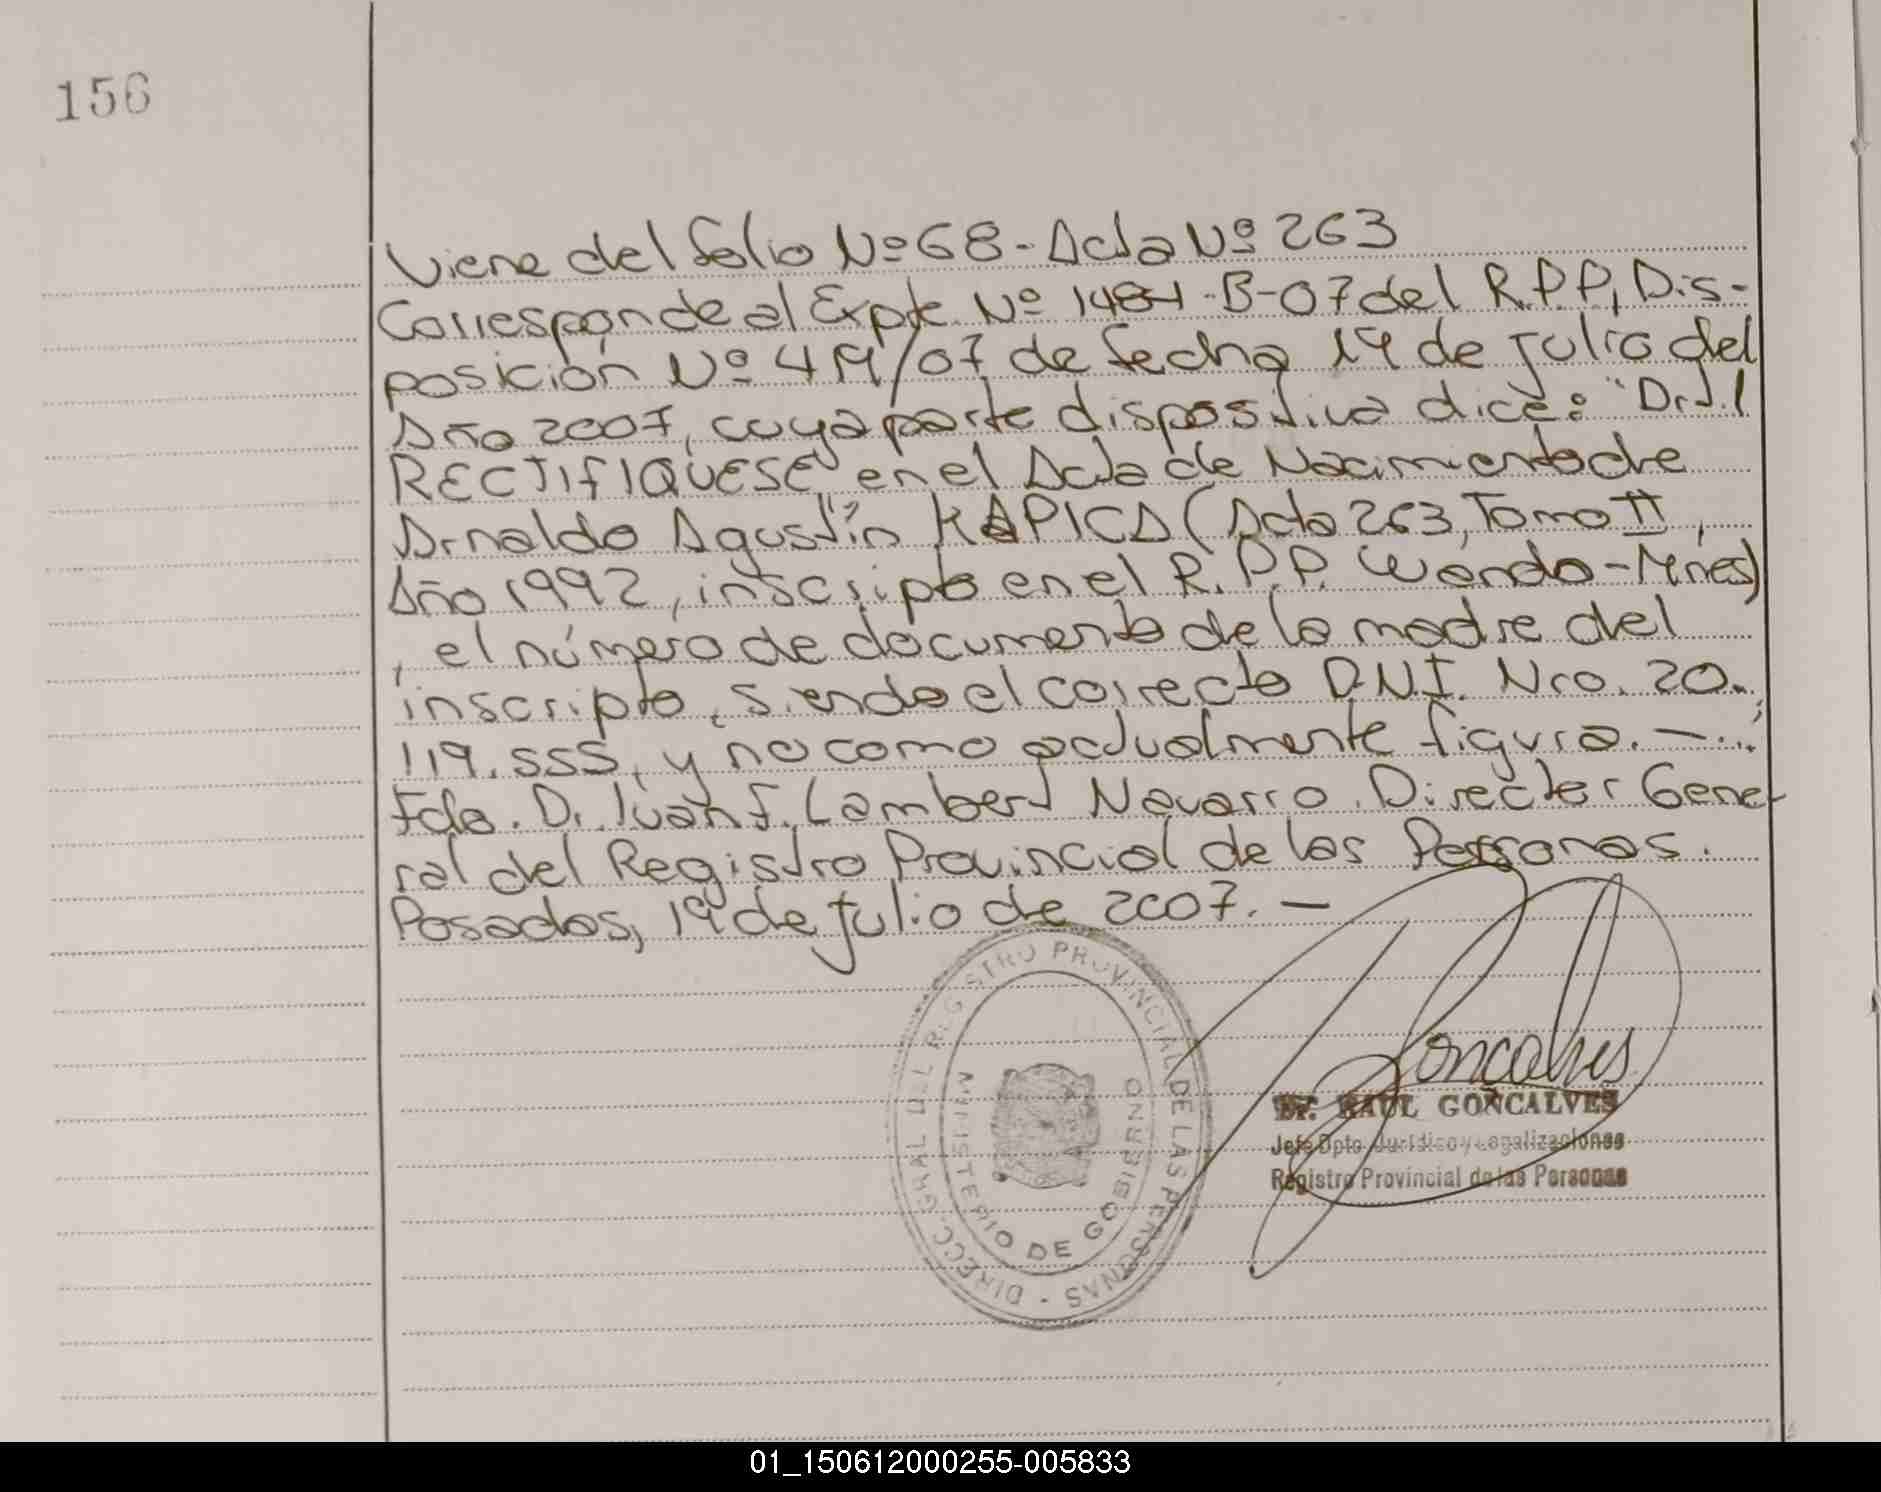 156
Viene del folio Nº 68 - Acta Nº 263
Corresponde al Expte. Nº 1484-B-07 del R.P.P, Dis-
posición Nº 419/07 de fecha 19 de Julio del
Año 2007, cuya parte dispositiva dice: "Art. 1
RECTIFIQUESE" en el Acta de Nacimiento de
Arnaldo Agustín KAPICA (Acta 263, Tomo II,
Año 1992, inscripto en el R.P.P. Wanda - Mnes)
, el número de documento de la madre del
inscripto, siendo el correcto D.N.I. Nro. 20.
119.555, y no como actualmente figura. —
Fdo. Dr. Iván F. Lambert Navarro. Director Gene-
ral del Registro Provincial de las Personas.
Posadas, 19 de Julio de 2007. —
DIRECC. GRAL DEL REGISTRO PROVINCIAL DE LAS PERSONAS -
MINISTERIO DE GOBIERNO
Goncalves
Dr. RAUL GONCALVES
Jefe Dpto. Jurídico y Legalizaciones
Registro Provincial de las Personas
01_150612000255-005833